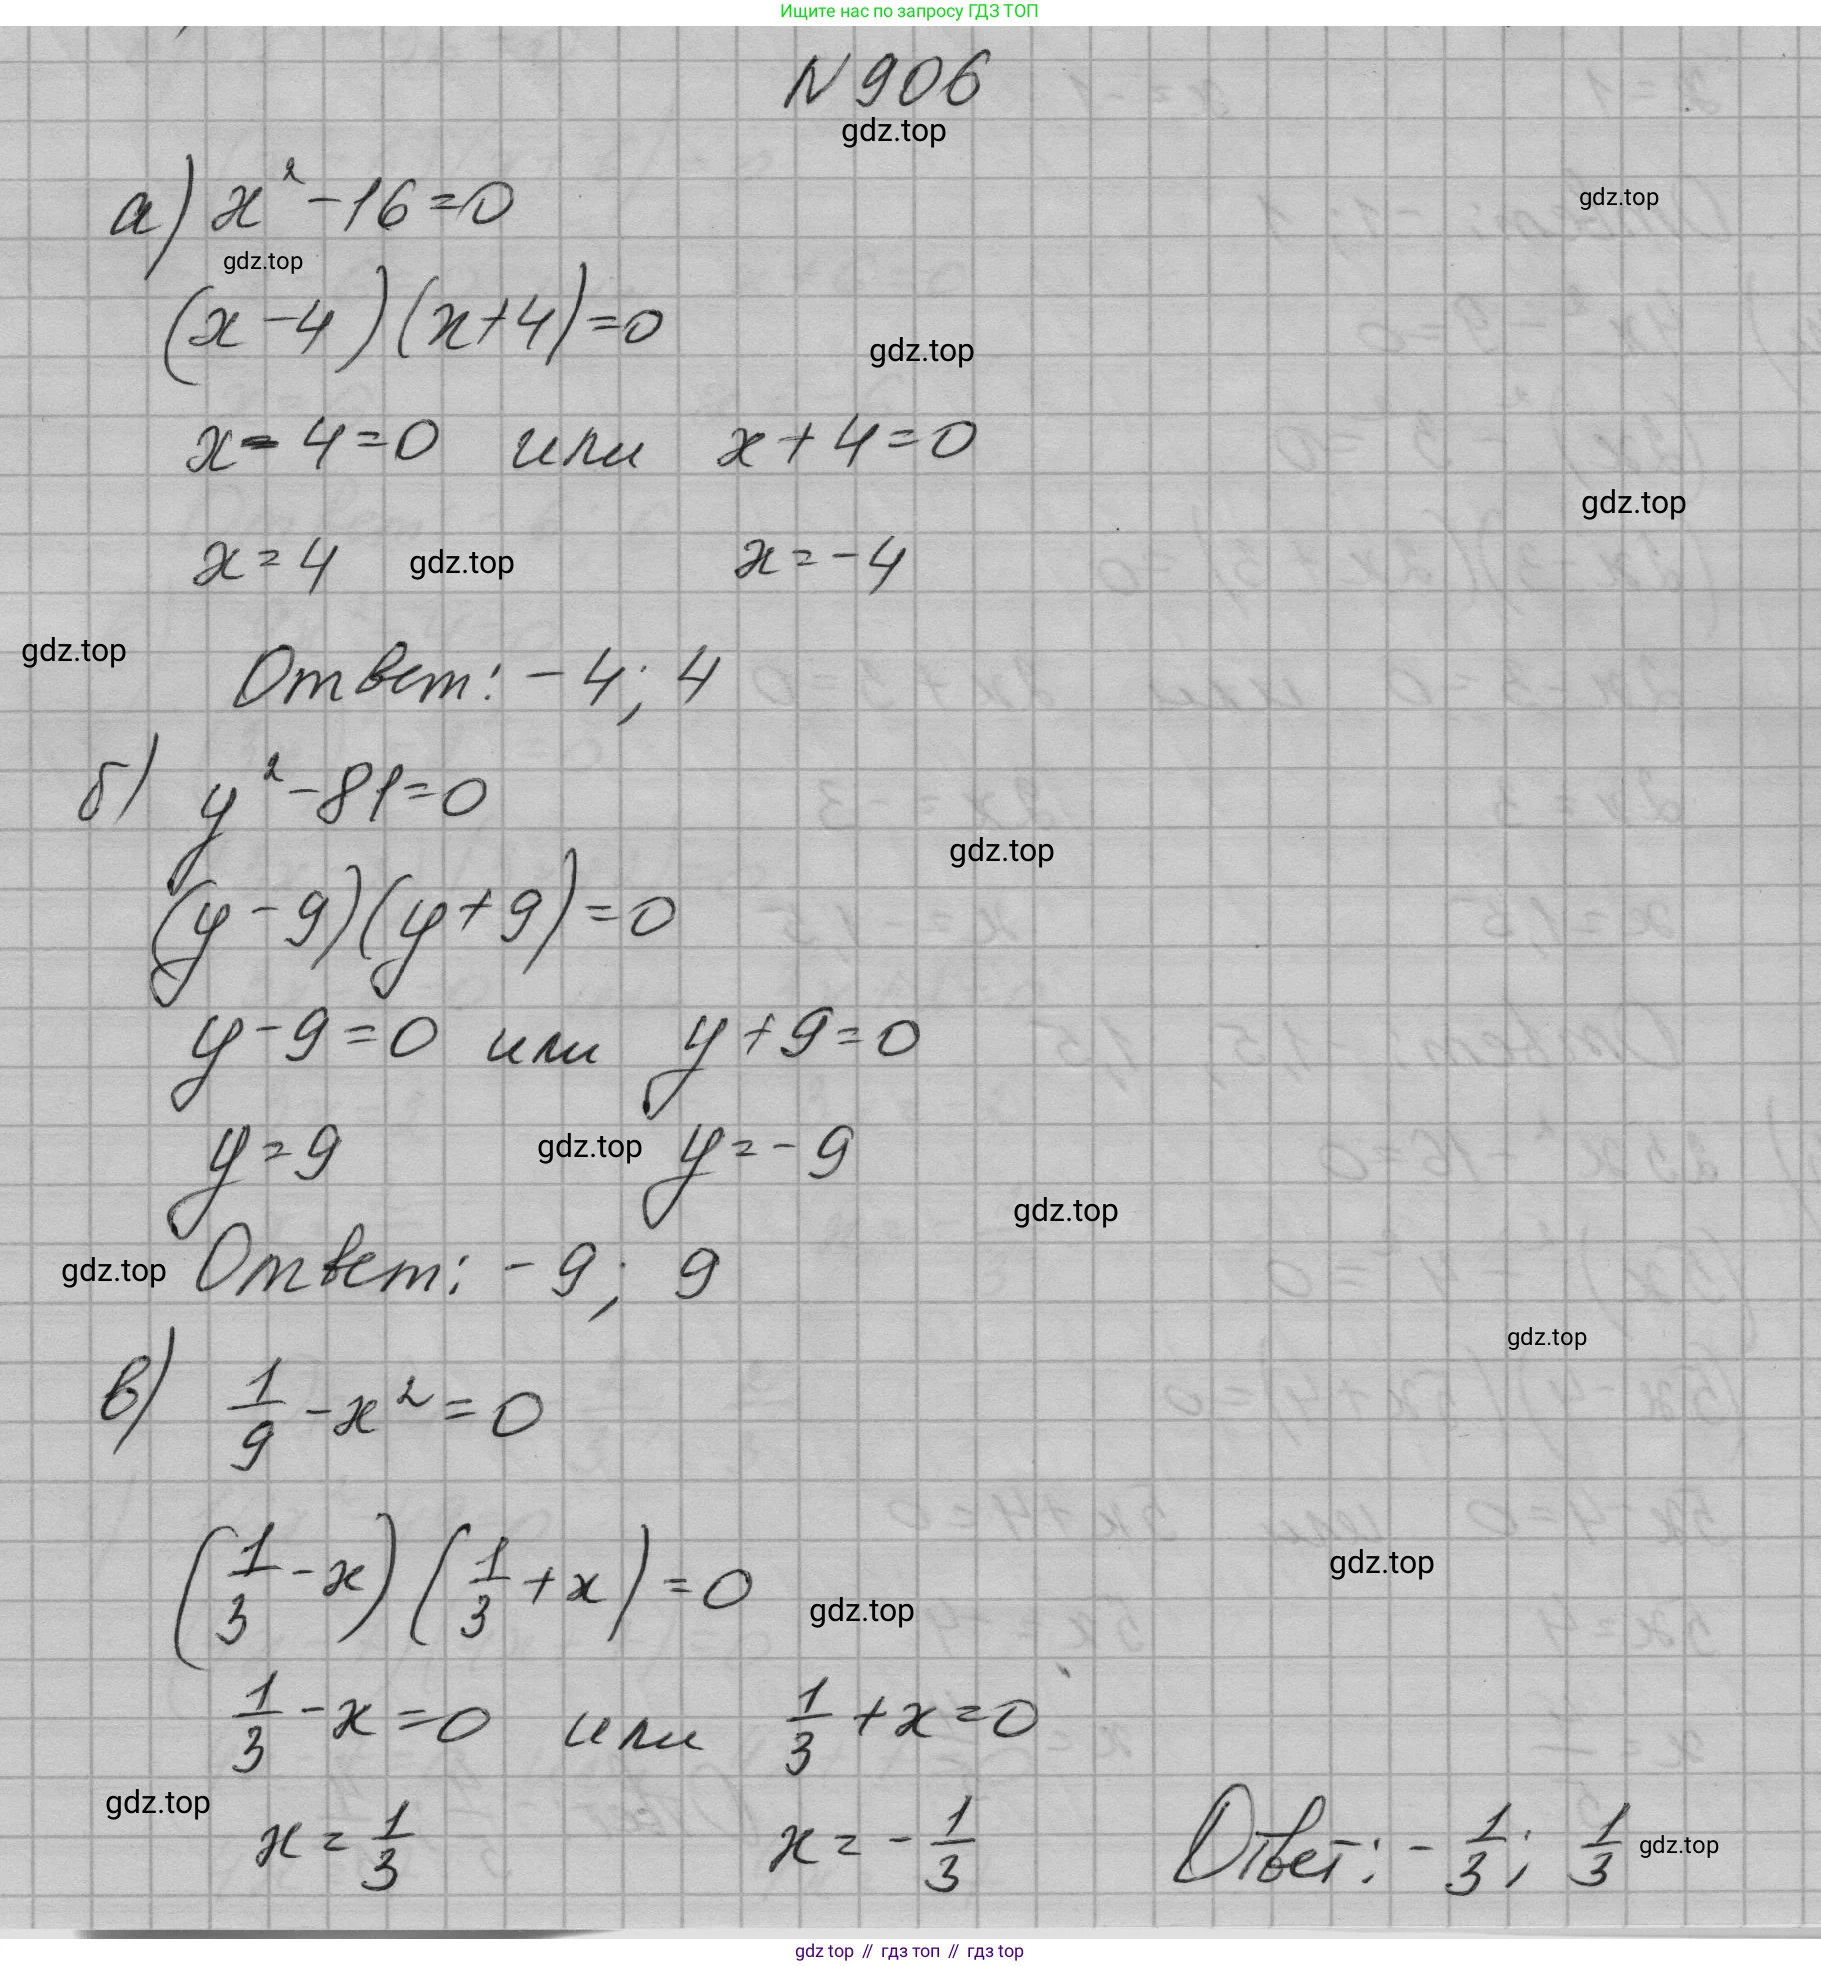 Ищите нас по запросу ГДЗ ТОП
N 906
gdz.top
а) x² - 16 = 0
gdz.top
gdz.top
(x - 4)(x + 4) = 0
gdz.top
x - 4 = 0 или x + 4 = 0
gdz.top
x = 4 gdz.top x = -4
gdz.top
Ответ: -4; 4
б) y² - 81 = 0
gdz.top
(y - 9)(y + 9) = 0
y - 9 = 0 или y + 9 = 0
y = 9 gdz.top y = -9
gdz.top
gdz.top Ответ: -9; 9
gdz.top
в) 1/9 - x² = 0
gdz.top
(1/3 - x)(1/3 + x) = 0
gdz.top
1/3 - x = 0 или 1/3 + x = 0
gdz.top
x = 1/3 x = -1/3 Ответ: -1/3; 1/3 gdz.top
gdz top // гдз топ // gdz top